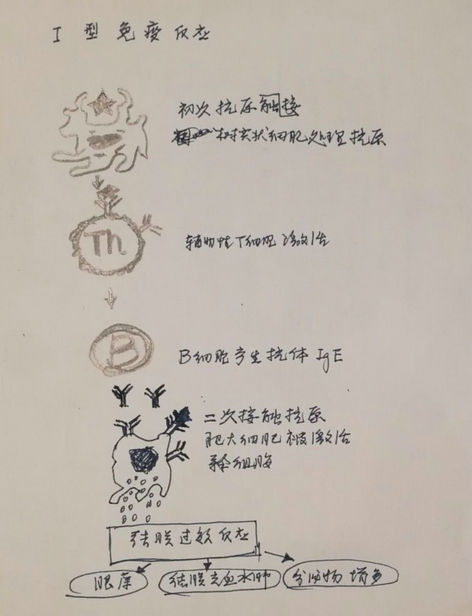 I 型免疫反应
初次抗原触接
树突状细胞处理抗原
Th
辅助性T细胞激活
B
B细胞产生抗体 IgE
二次接触抗原
肥大细胞被激活
细胞
结膜过敏反应
眼痒
结膜充血水肿
分泌物增多